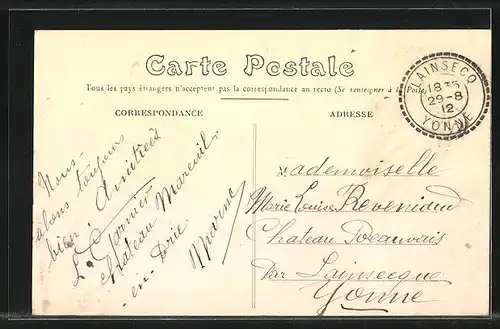 Carte Postale
Tous les pays étrangers n'acceptent pas la correspondance au recto (Se renseigner à la Poste)
CORRESPONDANCE
ADRESSE
LAINSECQ
18 35
29-8
12
YONNE
Nous
allons toujours
bien. Amitiés
L. Cornier
château Mareuil
-en-Brie
Marne
Mademoiselle
Marie Louise
Chateau Beauvais
Par Lainsecque
Yonne